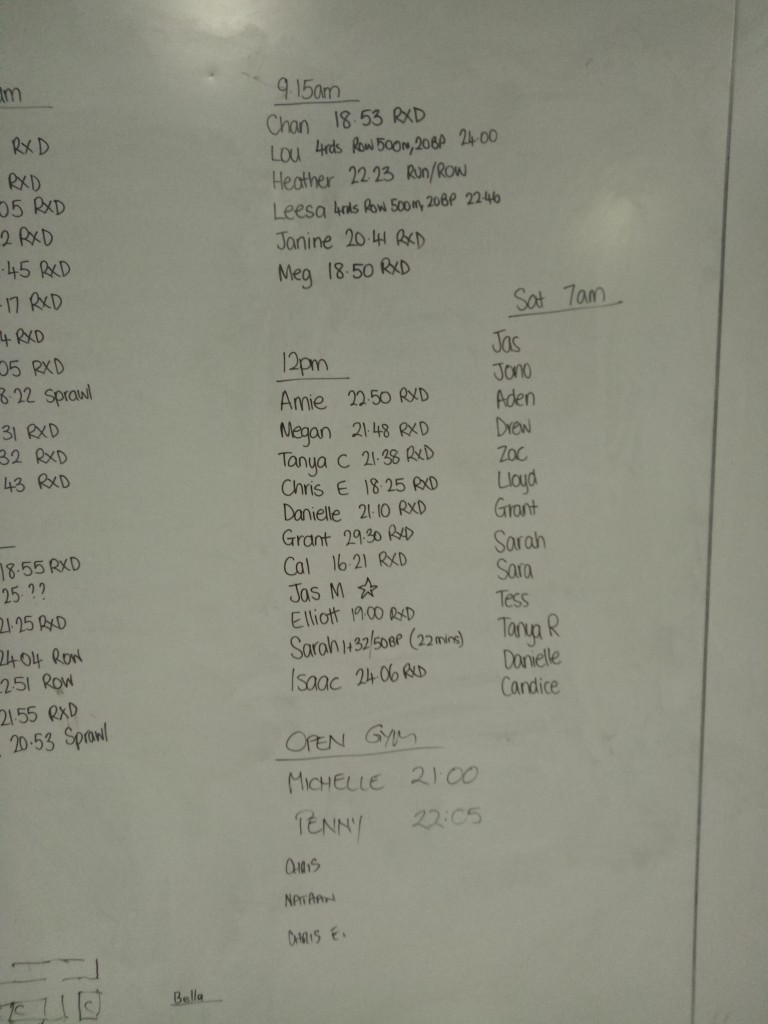 am
RXD
RXD
05 RXD
2 RXD
.45 RXD
.17 RXD
4 RXD
05 RXD
8.22 Sprawl
31 RXD
32 RXD
43 RXD
18.55 RXD
25.??
21.25 RXD
24.04 ROW
2.51 ROW
21.55 RXD
20.53 Sprawl
9.15am
Chan 18.53 RXD
Lou 4rds Row 500m, 20BP 24.00
Heather 22.23 Run/Row
Leesa 4rds Row 500m, 20BP 22.46
Janine 20.41 RXD
Meg 18.50 RXD
12pm
Amie 22.50 RXD
Megan 21.48 RXD
Tanya C 21.38 RXD
Chris E 18.25 RXD
Danielle 21.10 RXD
Grant 29.30 RXD
Cal 16.21 RXD
Jas M ☆
Elliott 19.00 RXD
Sarah 1+32/50BP (22mins)
Isaac 24.06 RXD
OPEN GYM
MICHELLE 21:00
PENNY 22:05
CHRIS
NATHAN
CHRIS E.
Sat 7am
Jas
Jono
Aden
Drew
Zac
Lloyd
Grant
Sarah
Sara
Tess
Tanya R
Danielle
Candice
C
C
Bella